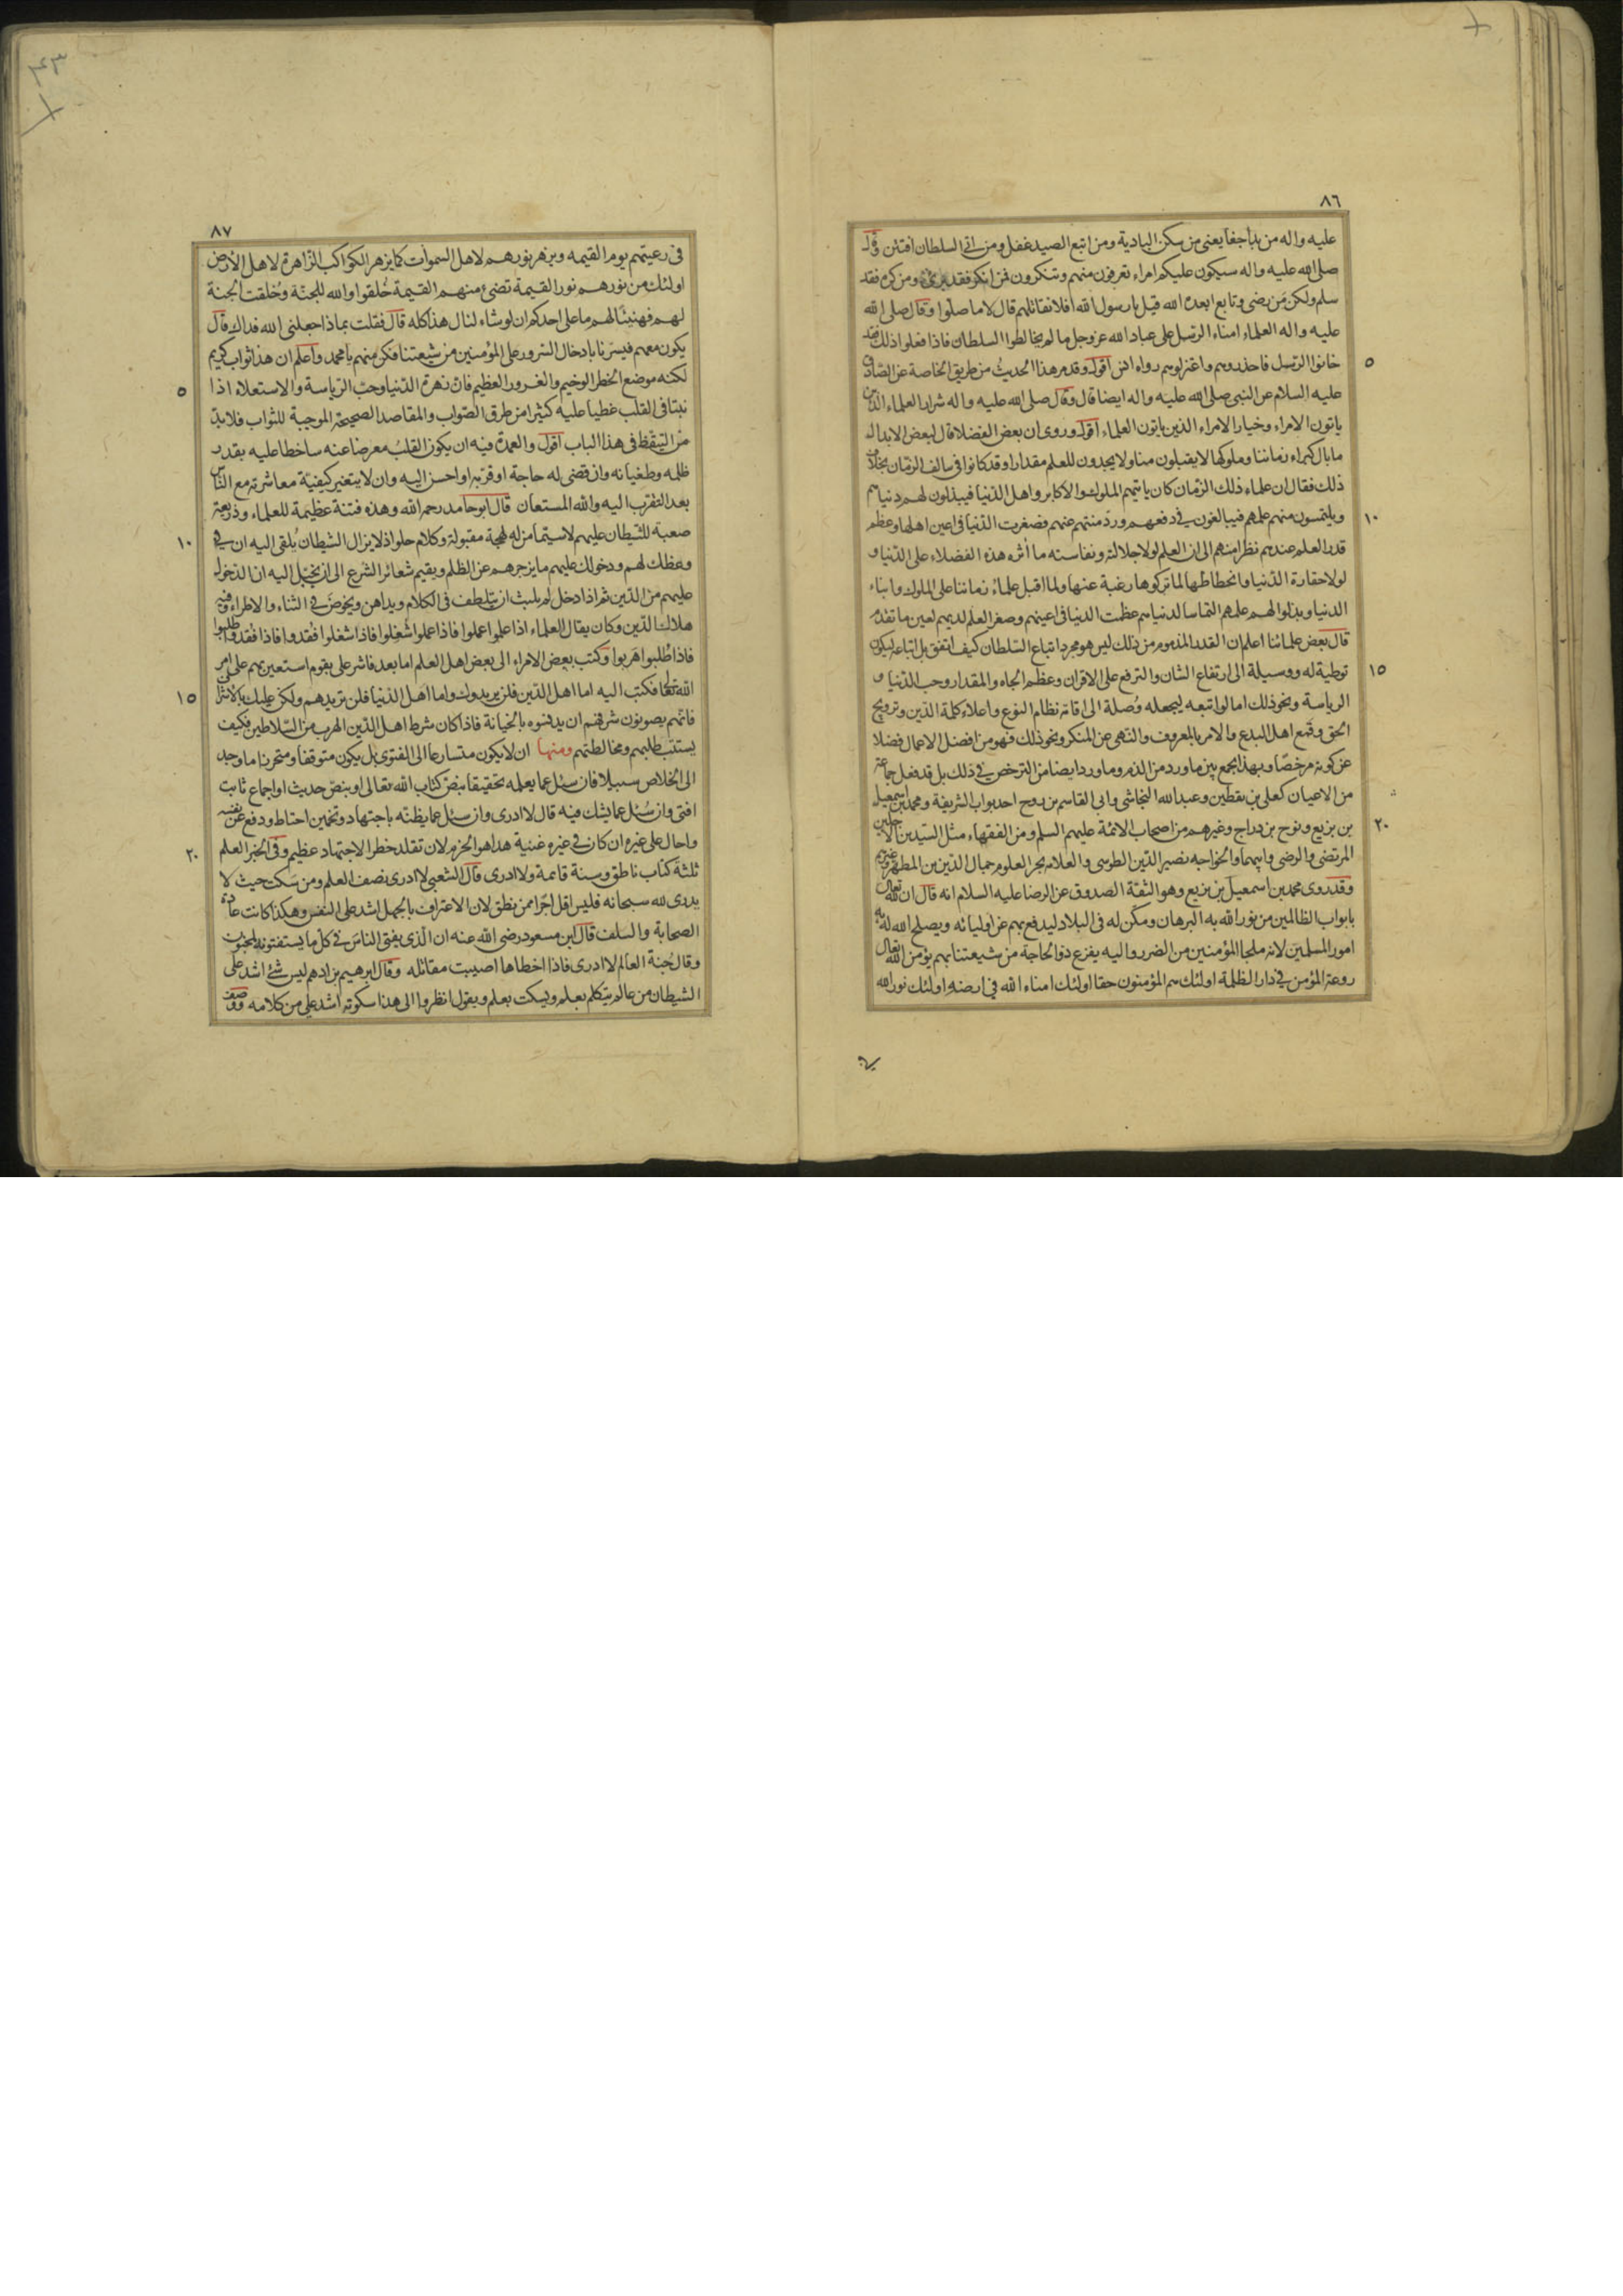 ٨٦
عليه واله من بدا جفا يعنى من سكن البادية ومن اتبع الصيد غفل ومن اتى السلطان افتتن وقال
صلى الله عليه واله سيكون عليكم امراء تعرفون منهم وتنكرون فمن انكر فقد برئ ومن كره فقد
سلم ولكن من رضى وتابع ابعده الله قيل يا رسول الله افلا نقاتلهم قال لا ما صلوا وقال صلى الله
عليه واله العلماء امناء الرسل على عباد الله عز وجل ما لم يخالطوا السلطان فاذا فعلوا ذلك فقد
٥
خانوا الرسل فاحذروهم واعتزلوهم رواه انس اقول وقد مر هذا الحديث من طريق الخاصة عن الصادق
عليه السلام عن النبى صلى الله عليه واله ايضا قال وقال صلى الله عليه واله شرار العلماء الذين
ياتون الامراء وخيار الامراء الذين ياتون العلماء اقول وروى ان بعض الفضلا قال لبعض الابدال
ما بال كبراء زماننا وملوكها لا يقبلون منا ولا يجدون للعلم مقدارا وقد كانوا فى سالف الزمان بخلاف
ذلك فقال ان علماء ذلك الزمان كان ياتيهم الملوك والاكابر واهل الدنيا فيبذلون لهم دنياهم
١٠
ويلتمسون منهم علمهم فيبالغون في دفعهم ورد منتهم عنهم فصغرت الدنيا فى اعين اهلها وعظم
قدر العلم عندهم نظرا منهم الى ان العلم لولا جلالته ونفاسته ما اثره هذه الفضلاء على الدنيا و
لولا حقارة الدنيا وانحطاطها لما تركوها رغبة عنها ولما اقبل علماء زماننا على الملوك وابناء
الدنيا وبذلوا لهم علمهم التماسا لدنياهم عظمت الدنيا فى اعينهم وصغر العلم لديهم لعين ما تقدم
قال بعض علمائنا اعلم ان القدر المذموم من ذلك ليس هو مجرد اتباع السلطان كيف اتفق بل اتباعه ليكون
١٥
توطية له ووسيلة الى ارتفاع الشان والترفع على الاقران وعظم الجاه والمقدار وحب الدنيا و
الرياسة ونحو ذلك اما لو اتبعه ليجعله وصلة الى اقامة نظام النوع واعلاء كلمة الدين وترويج
الحق وقمع اهل البدع والامر بالمعروف والنهى عن المنكر ونحو ذلك فهو من افضل الاعمال فضلا
عن كونه مرخصا وبهذا يجمع بين ما ورد من الذم وما ورد ايضا من الترخص في ذلك بل قد فعل جماعة
من الاعيان كعلى بن يقطين وعبد الله النجاشى وابى القاسم بن روح احد بواب الشريفة ومحمد بن اسمعيل
٢٠
بن بزيع ونوح بن دراج وغيرهم من اصحاب الائمة عليهم السلم ومن الفقهاء مثل السيدين الاجلين
المرتضى والرضى وابيهما والخواجه نصير الدين الطوسى والعلامه بحر العلوم جمال الدين بن المطهر وغيرهم
وقد روى محمد بن اسمعيل بن بزيع وهو الثقة الصدوق عن الرضا عليه السلام انه قال ان لله تعالى
بابواب الظالمين من نور الله به البرهان ومكن له فى البلاد ليدفع بهم عن اوليائه ويصلح الله له به
امور المسلمين لانه ملجا المؤمنين من الضرر واليه يفزع ذو الحاجة من شيعتنا بهم يؤمن الله تعالى
روعة المؤمن في دار الظلمة اولئك هم المؤمنون حقا اولئك امناء الله فى ارضه اولئك نور الله
٤٣
٨٧
فى رعيتهم يوم القيمه ويزهر نورهم لاهل السموات كما يزهر الكواكب الزاهرة لاهل الارض
اولئك من نورهم نور القيمة تضئ منهم القيمة خلقوا والله للجنة وخلقت الجنة
لهم فهنيئا لهم ما على احدكم ان لو شاء لنال هذا كله قال فقلت بماذا جعلنى الله فداك قال
يكون معهم فيسرنا بادخال السرور على المؤمنين من شيعتنا فكن منهم يا محمد واعلم ان هذا ثواب كريم
٥
لكنه موضع الخطر الوخيم والغرور العظيم فان زهرة الدنيا وحب الرياسة والاستعلاء اذا
نبتا فى القلب غطيا عليه كثيرا من طرق الصواب والمقاصد الصحيحة الموجبة للثواب فلا بد
من التيقظ فى هذا الباب اقول والعمدة فيه ان يكون القلب معرضا عنه ساخطا عليه بقدر
ظلمه وطغيانه وان قضى له حاجة او قربه او احسن اليه وان لا يتغير كيفية معاشرته مع الناس
بعد التقرب اليه والله المستعان قال ابو حامد رحمه الله وهذه فتنة عظيمة للعلماء وذريعة
١٠
صعبة للشيطان عليهم لا سيما من له لهجة مقبولة وكلام حلو اذ لا يزال الشيطان يلقى اليه ان في
وعظك لهم ودخولك عليهم ما يزجرهم عن الظلم ويقيم شعائر الشرع الى ان يخيل اليه ان الدخول
عليهم من الدين ثم اذا دخل لم يلبث ان يتلطف فى الكلام ويداهن ويخوض في الثناء والاطراء وفيه
هلاك الدين وكان يقال العلماء اذا علموا عملوا فاذا عملوا شغلوا فاذا شغلوا فقدوا فاذا فقدوا طلبوا
فاذا طلبوا هربوا وكتب بعض الامراء الى بعض اهل العلم اما بعد فاشر على بقوم استعين بهم على امر
١٥
الله تعالى فكتب اليه اما اهل الدين فلن يريدوك واما اهل الدنيا فلن تريدهم ولكن عليك بالاشراف
فانهم يصونون شرفهم ان يدنسوه بالخيانة فاذا كان شرط اهل الدين الهرب من السلاطين فكيف
يستتب طلبهم ومخالطتهم ومنها ان لا يكون متسارعا الى الفتوى بل يكون متوقفا ومتحرزا ما وجد
الى الخلاص سبيلا فان سئل عما يعلمه تحقيقا بنص كتاب الله تعالى او بنص حديث او اجماع ثابت
افتى وان سئل عما يشك فيه قال لا ادرى وان سئل عما يظنه باجتهاد وتخمين احتاط ودفع عن نفسه
٢٠
واحال على غيره ان كان في غيره غنية هذا هو الحزم لان تقلد خطر الاجتهاد عظيم وفى الخبر العلم
ثلثة كتاب ناطق وسنة قائمة ولا ادرى قال الشعبى لا ادرى نصف العلم ومن سكت حيث لا
يدرى لله سبحانه فليس اقل اجرا ممن نطق لان الاعتراف بالجهل اشد على النفس وهكذا كانت عادة
الصحابة والسلف قال ابن مسعود رضى الله عنه ان الذى يفتى الناس في كل ما يستفتونه لمجنون
وقال جنة العالم لا ادرى فاذا اخطاها اصيبت مقاتله وقال ابرهيم بن ادهم ليس شئ اشد على
الشيطان من عالم يتكلم بعلم ويسكت بعلم ويقول انظروا الى هذا سكوته اشد على من كلامه ووصف